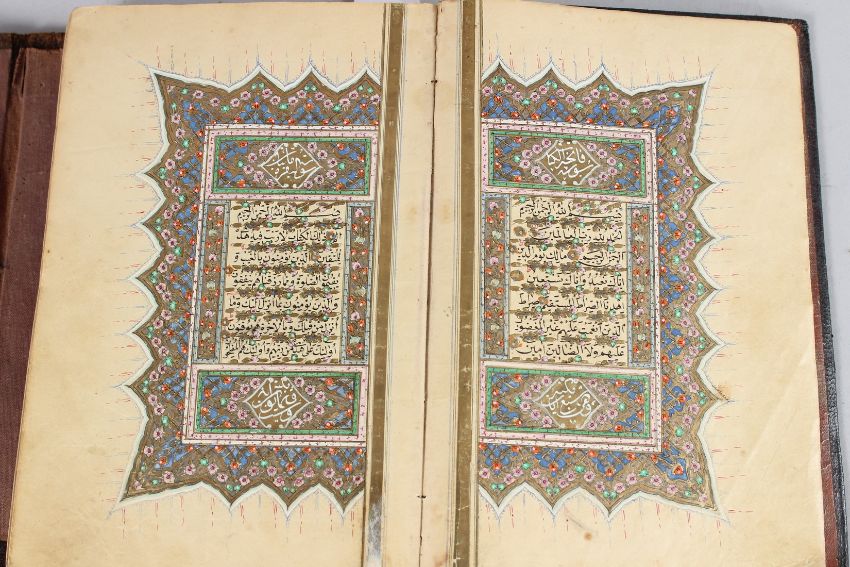 سورة فاتحة الكتاب
بسم الله الرحمن الرحيم
الحمد لله رب العالمين
الرحمن الرحيم مالك يوم الدين
اياك نعبد واياك نستعين
اهدنا الصراط المستقيم صراط
الذين انعمت عليهم غير المغضوب
عليهم ولا الضالين امين
بسم الله الرحمن الرحيم
الم ذلك الكتاب لا ريب فيه هدى
للمتقين الذين يؤمنون بالغيب
ويقيمون الصلوة ومما رزقناهم ينفقون
والذين يؤمنون بما انزل اليك وما
انزل من قبلك وبالاخرة هم يوقنون
اولئك على هدى من ربهم واولئك هم المفلحون